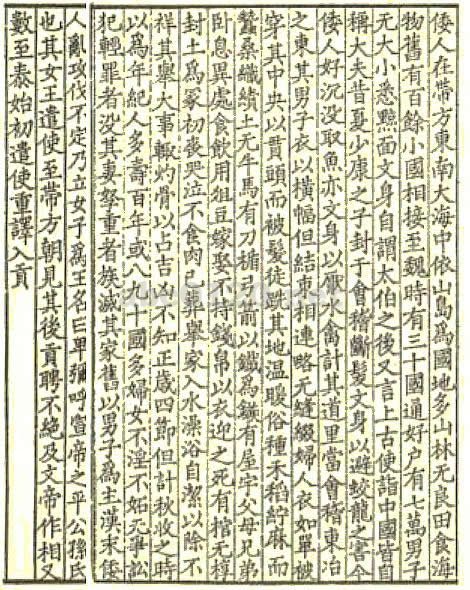 倭人在帶方東南大海中依山島爲國地多山林無良田食海
物舊有百餘小國相接至魏時有三十國通好户有七萬男子
无大小悉黥面文身自謂太伯之後又言上古使詣中國皆自
稱大夫昔夏少康之子封于會稽斷髮文身以避蛟龍之害今
倭人好沉没取魚亦文身以厭水禽計其道里當會稽東冶
之東其男子衣以横幅但結束相連略无縫綴婦人衣如單被
穿其中央以貫頭而被髮徒跣其地温暖俗種禾稻紵麻而
蠶桑織績土无牛馬有刀楯弓箭以鐵爲鏃有屋宇父母兄弟
卧息異處食飲用俎豆嫁娶不持錢帛以衣迎之死有棺无椁
封土爲冢初喪哭泣不食肉已葬舉家入水澡浴自潔以除不
祥其舉大事輙灼骨以占吉凶不知正歳四節但計秋收之時
以爲年紀人多壽百年或八九十國多婦女不淫不妬无爭訟
犯輕罪者没其妻孥重者族滅其家舊以男子爲主漢末倭
人亂攻伐不定乃立女子爲王名曰卑彌呼宣帝之平公孫氏
也其女王遣使至帶方朝見其後貢聘不絶及文帝作相又
數至泰始初遣使重譯入貢